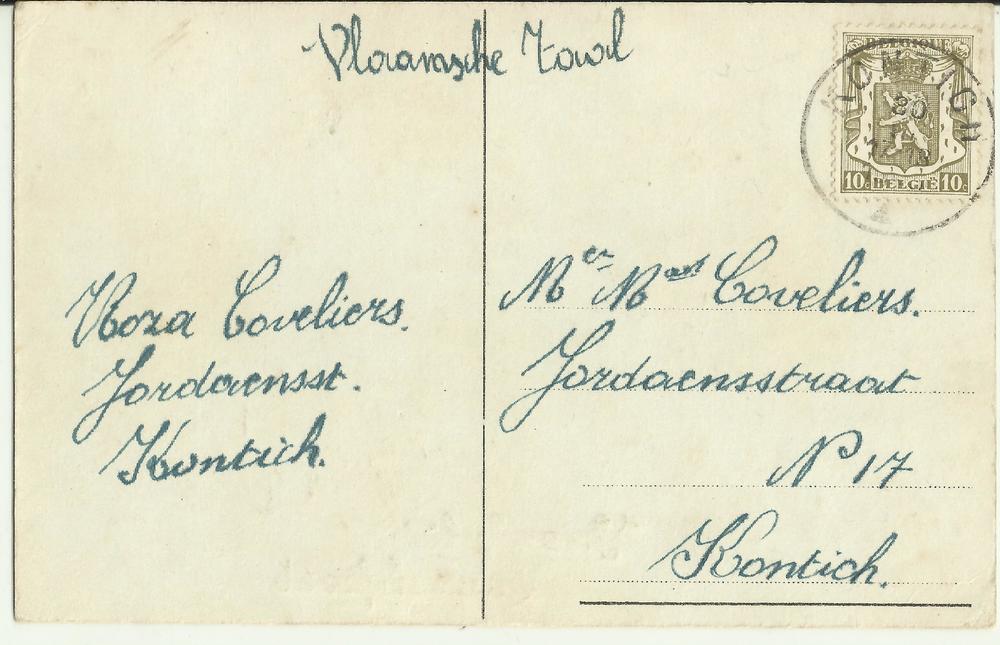 Vlaamsche Taal
BELGIQUE
KONTICH
10c BELGIË 10c
Roza Coveliers.
Jordaensst.
Kontich.
Mer Mad Coveliers.
Jordaensstraat
No 17
Kontich.